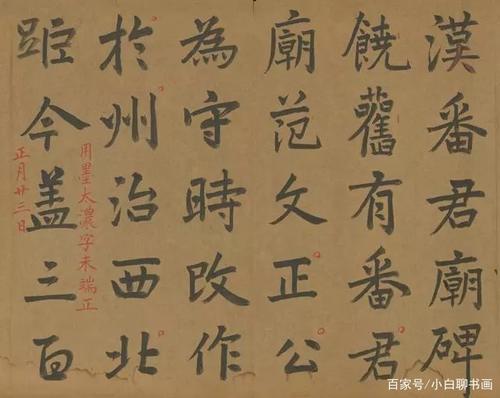 漢番君廟碑
饒舊有番君
廟范文正公
為守時改作
於州治西北
距今盖三百
用墨太濃字未端正
正月廿三日
百家号/小白聊书画